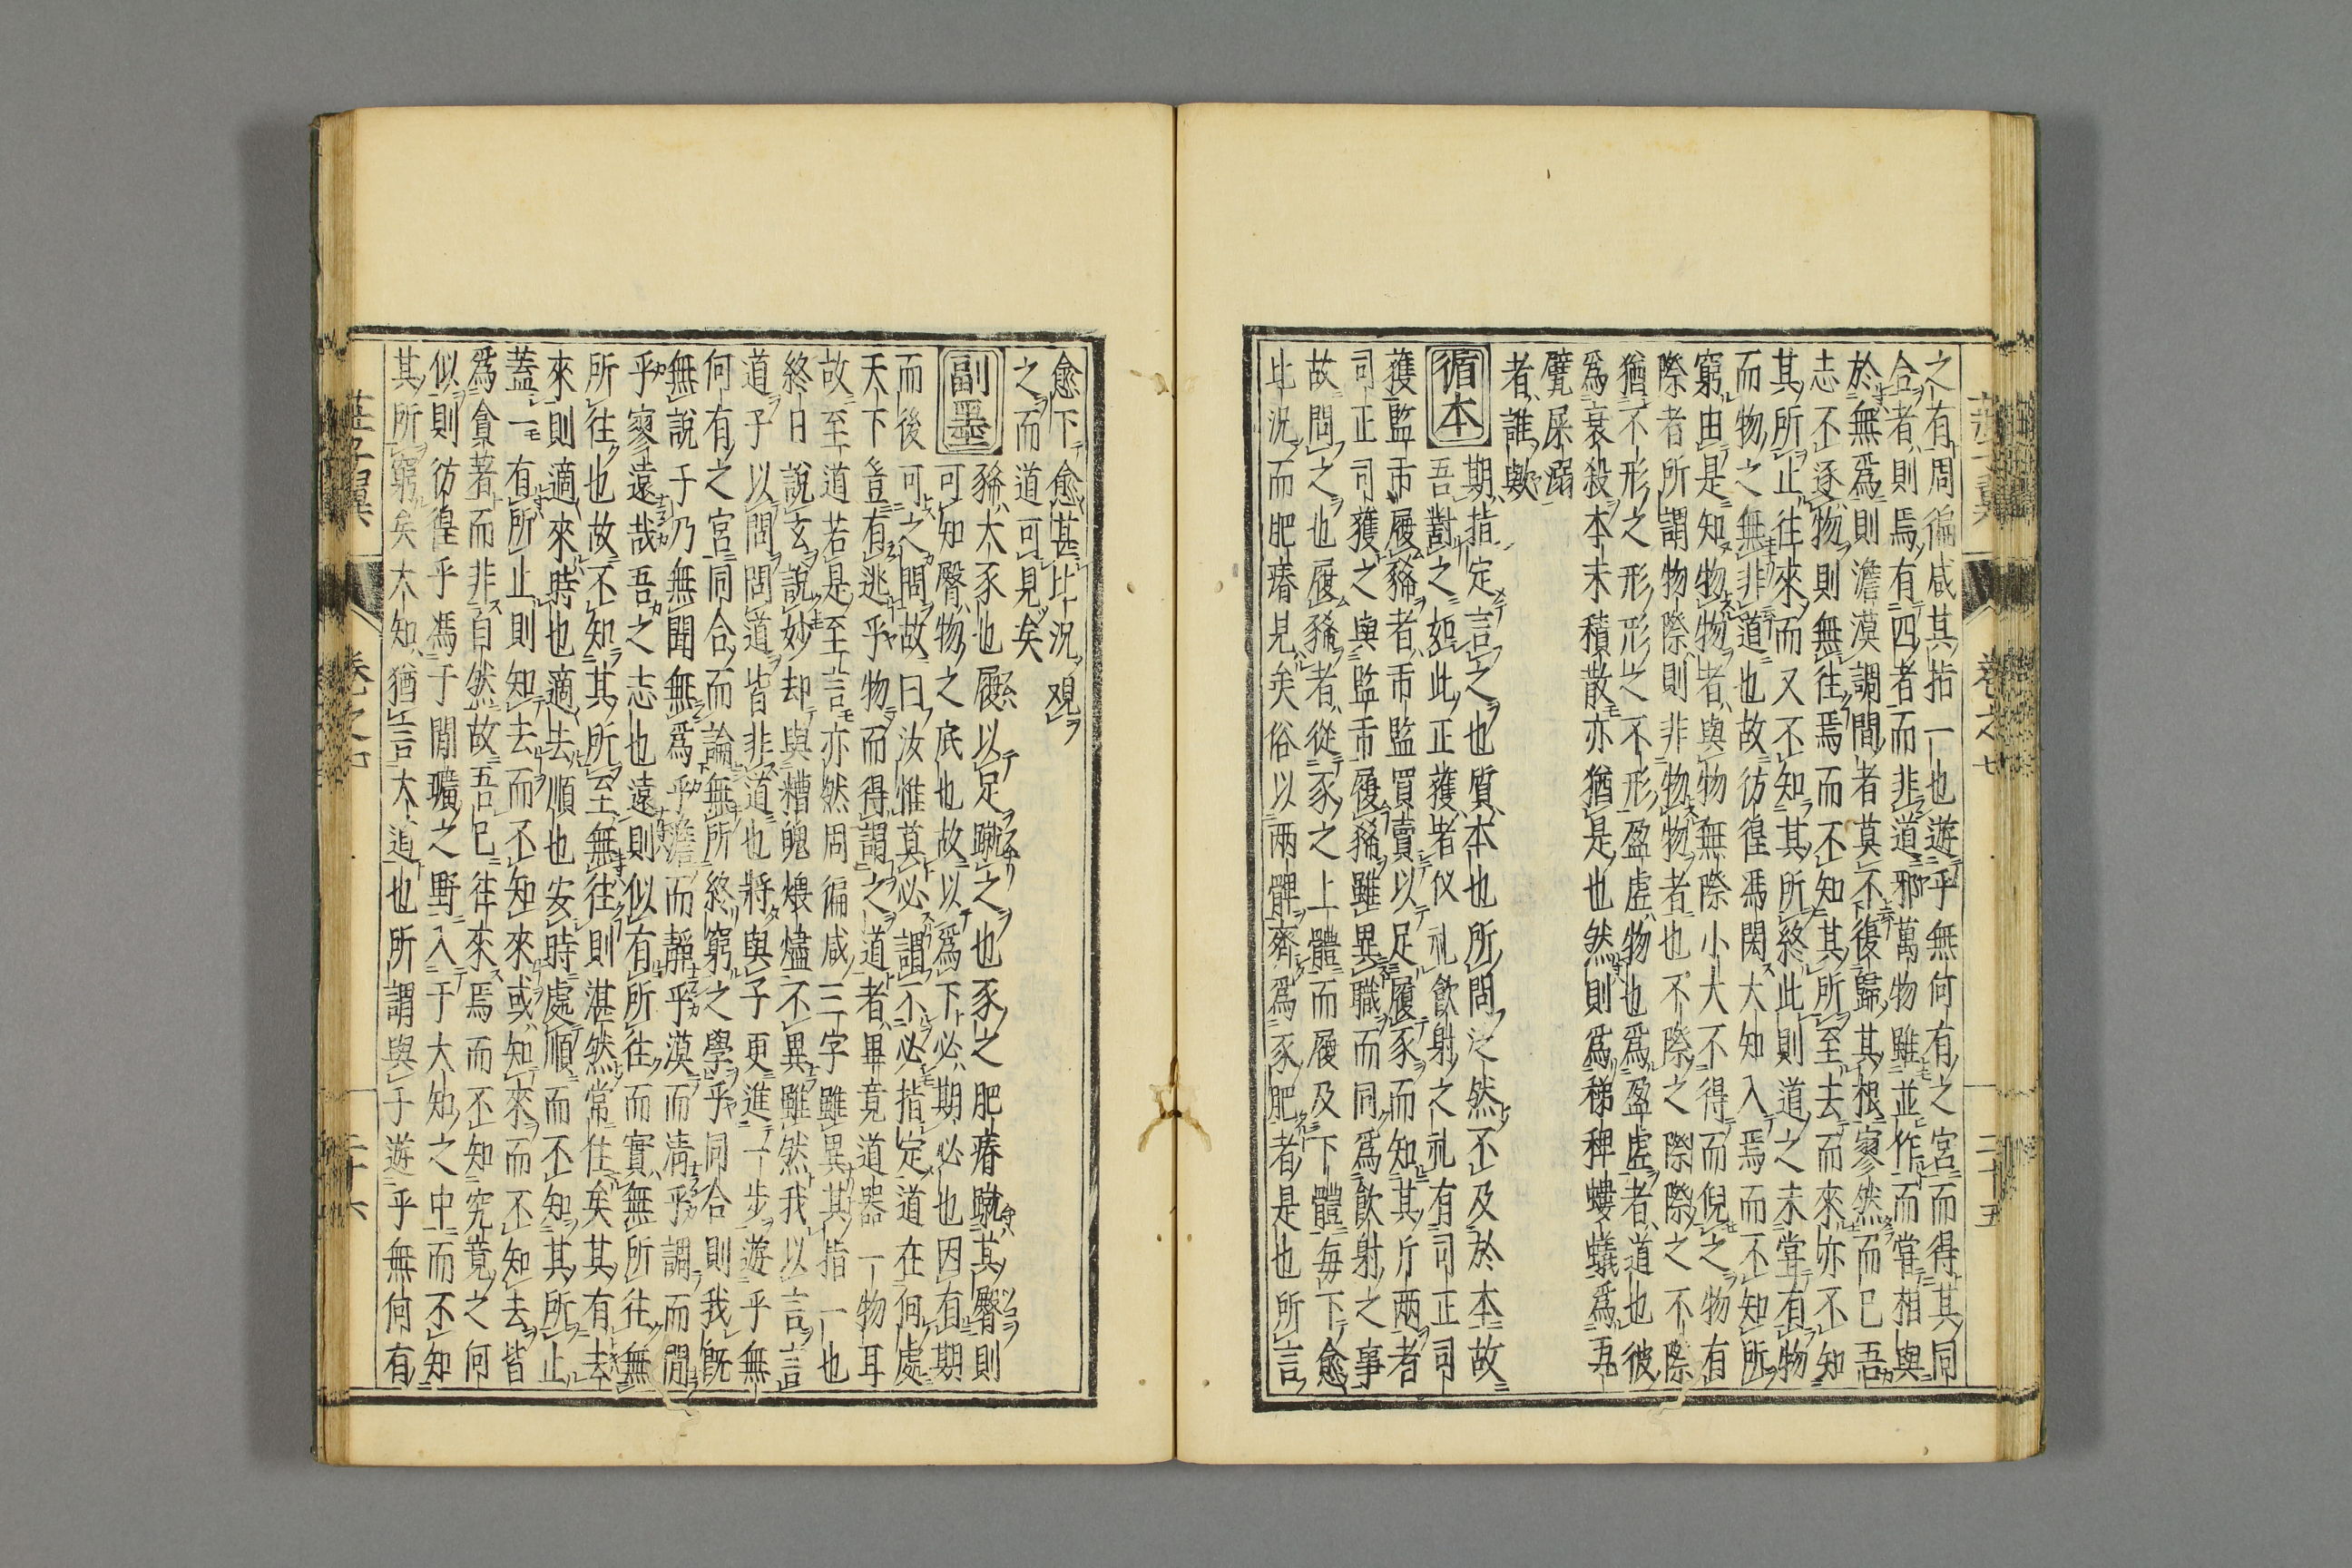 之有周徧咸其指一也遊乎無何有之宮而得其同
合者則焉有四者而非道邪萬物雖並作而嘗相與
於無爲則澹漠調間者莫不復歸其根寥然而已吾
志不逐物則無往焉而不知其所至去而來亦不知
其所止往來而又不知其所終此則道之未嘗有物
而物之無非道也故彷徨馮閎大知入焉而不知所
窮由是知物物者與物無際小大不得而倪之物有
際者所謂物際則非物物者也不際之際際之不際
猶不形之形形之不形盈虛物也爲盈虛者道也彼
爲衰殺本末積散亦猶是也然則爲稊稗螻蟻爲瓦
甓屎溺
者誰歟
循本
期指定言之也質本也所問泛然不及於本故
吾對之如此正獲者仪礼飲射之礼有司正司
獲監市履豨者市監買賣以足履豕而知其斤两者
司正司獲之與監市履豨雖異職而同爲飲射之事
故問之也履豨者從豕之上體而履及下體每下愈
比況而肥瘠見矣俗以两髀齊爲豕肥者是也所言
愈下愈甚比況觀
之而道可見矣
副墨
豨大豕也履以足蹴之也豕之肥瘠蹴其臀則
可知臀物之底也故以爲下必期必也因有期
而後可之問故曰汝惟莫必謂不必指定道在何處
天下豈有逃乎物而得謂之道者畢竟道器一物耳
故至道若是至言亦然周徧咸三字雖異其指一也
終日說玄說妙却與糟魄煨燼不異雖然我以言言
道子以問問道皆非道也將與子更進一步遊乎無
何有之宮同合而論無所終窮之學乎同合則我既
無說子乃無聞無爲乎澹而靜乎漠而清乎調而閒
乎寥遠哉吾之志也遠則似有所往而實無所往無
所往也故不知其所至無往則湛然常住矣其有去
來則適來時也適去順也安時處順而不知其所止
蓋一有所止則知去而不知來或知來而不知去皆
爲貪著而非自然故吾已往來焉而不知究竟之何
似則彷徨乎馮于閒曠之野入于大知之中而不知
其所窮矣大知猶言大道也所謂與子遊乎無何有
莊子翼
卷之七
二十五
卷之七
二十六